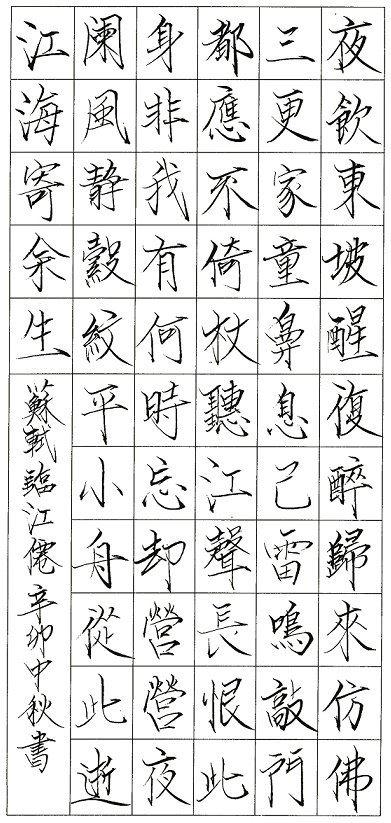 夜飲東坡醒復醉歸來仿佛
三更家童鼻息已雷鳴敲門
都應不倚杖聽江聲長恨此
身非我有何時忘却營營夜
阑風静縠紋平小舟從此逝
江海寄余生
蘇軾臨江僊辛卯中秋書